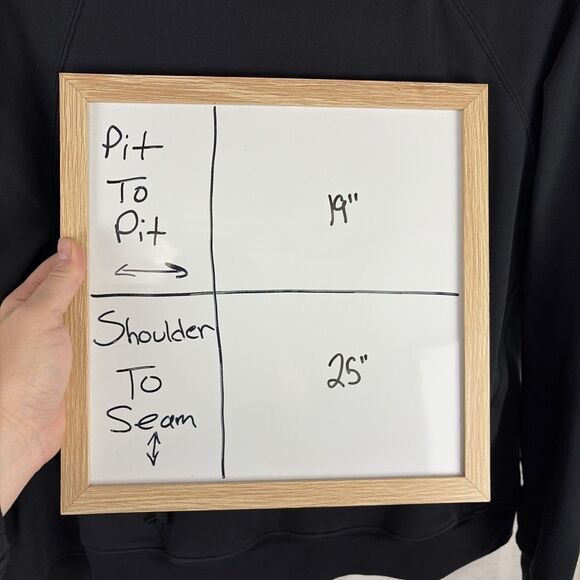 Pit
To
Pit
19"
Shoulder
To
Seam
25"